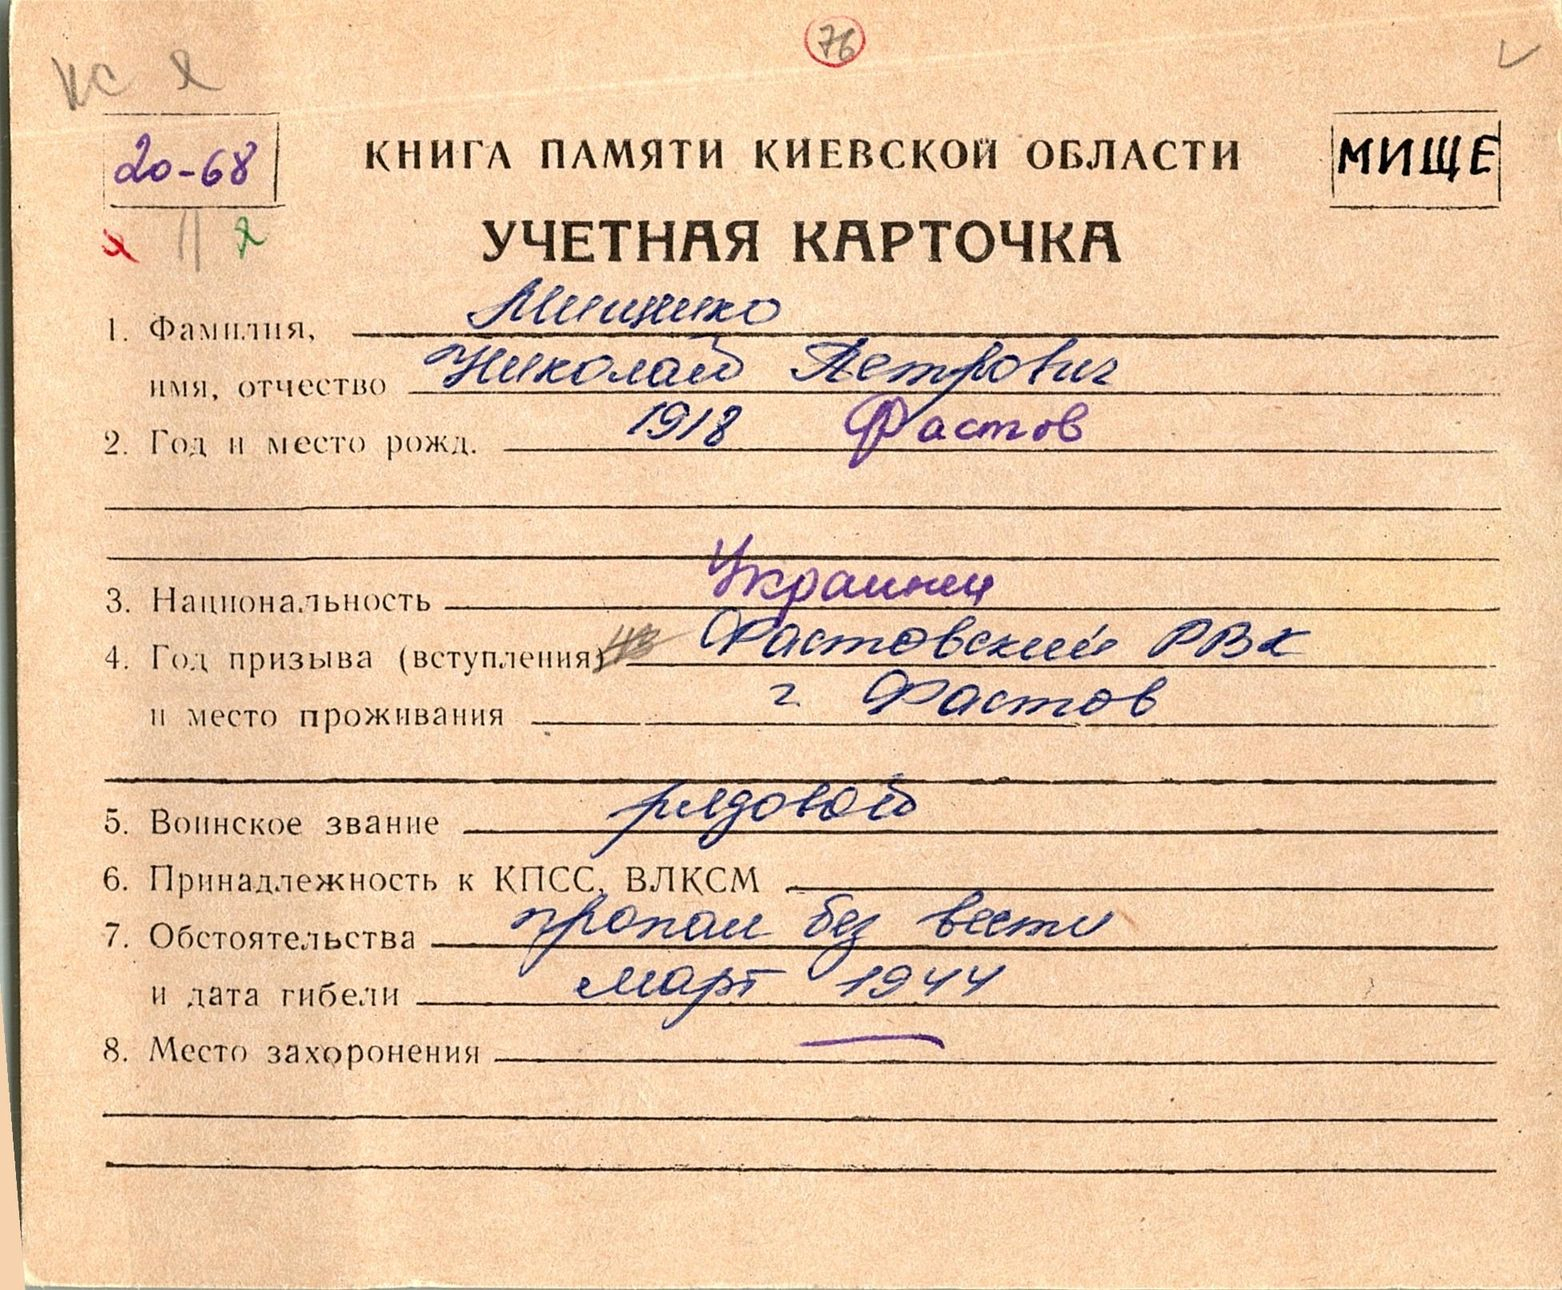 76
КС
20-68
КНИГА ПАМЯТИ КИЕВСКОЙ ОБЛАСТИ
МИЩЕ
УЧЕТНАЯ КАРТОЧКА
1. Фамилия, Мищенко
имя, отчество Николай Петрович
2. Год и место рожд. 1918 Фастов
3. Национальность Украинец
4. Год призыва (вступления) Фастовский РВК
и место проживания г. Фастов
5. Воинское звание рядовой
6. Принадлежность к КПСС, ВЛКСМ
7. Обстоятельства пропал без вести
и дата гибели март 1944
8. Место захоронения —